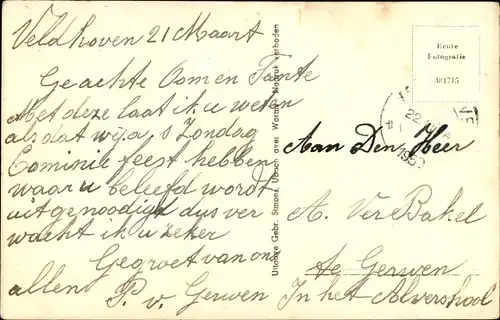 Veldhoven 21 Maart
Geachte Oom en Tante
Met deze laat ik u weten
als dat wij a, s Zondag
Cominie feest hebben
waar u beleefd wordt
uitgenoodigd dus ver
wacht ik u zeker
Gegroet van ons
allen P. v. Gerwen
Uitgave Gebr. Simons, Ubach over Worms. Nadruk verboden
Echte
Fotografie
481715
22
1950
Aan Den Heer
A. Vere Bakel
te Gerwen
In het Alvershool